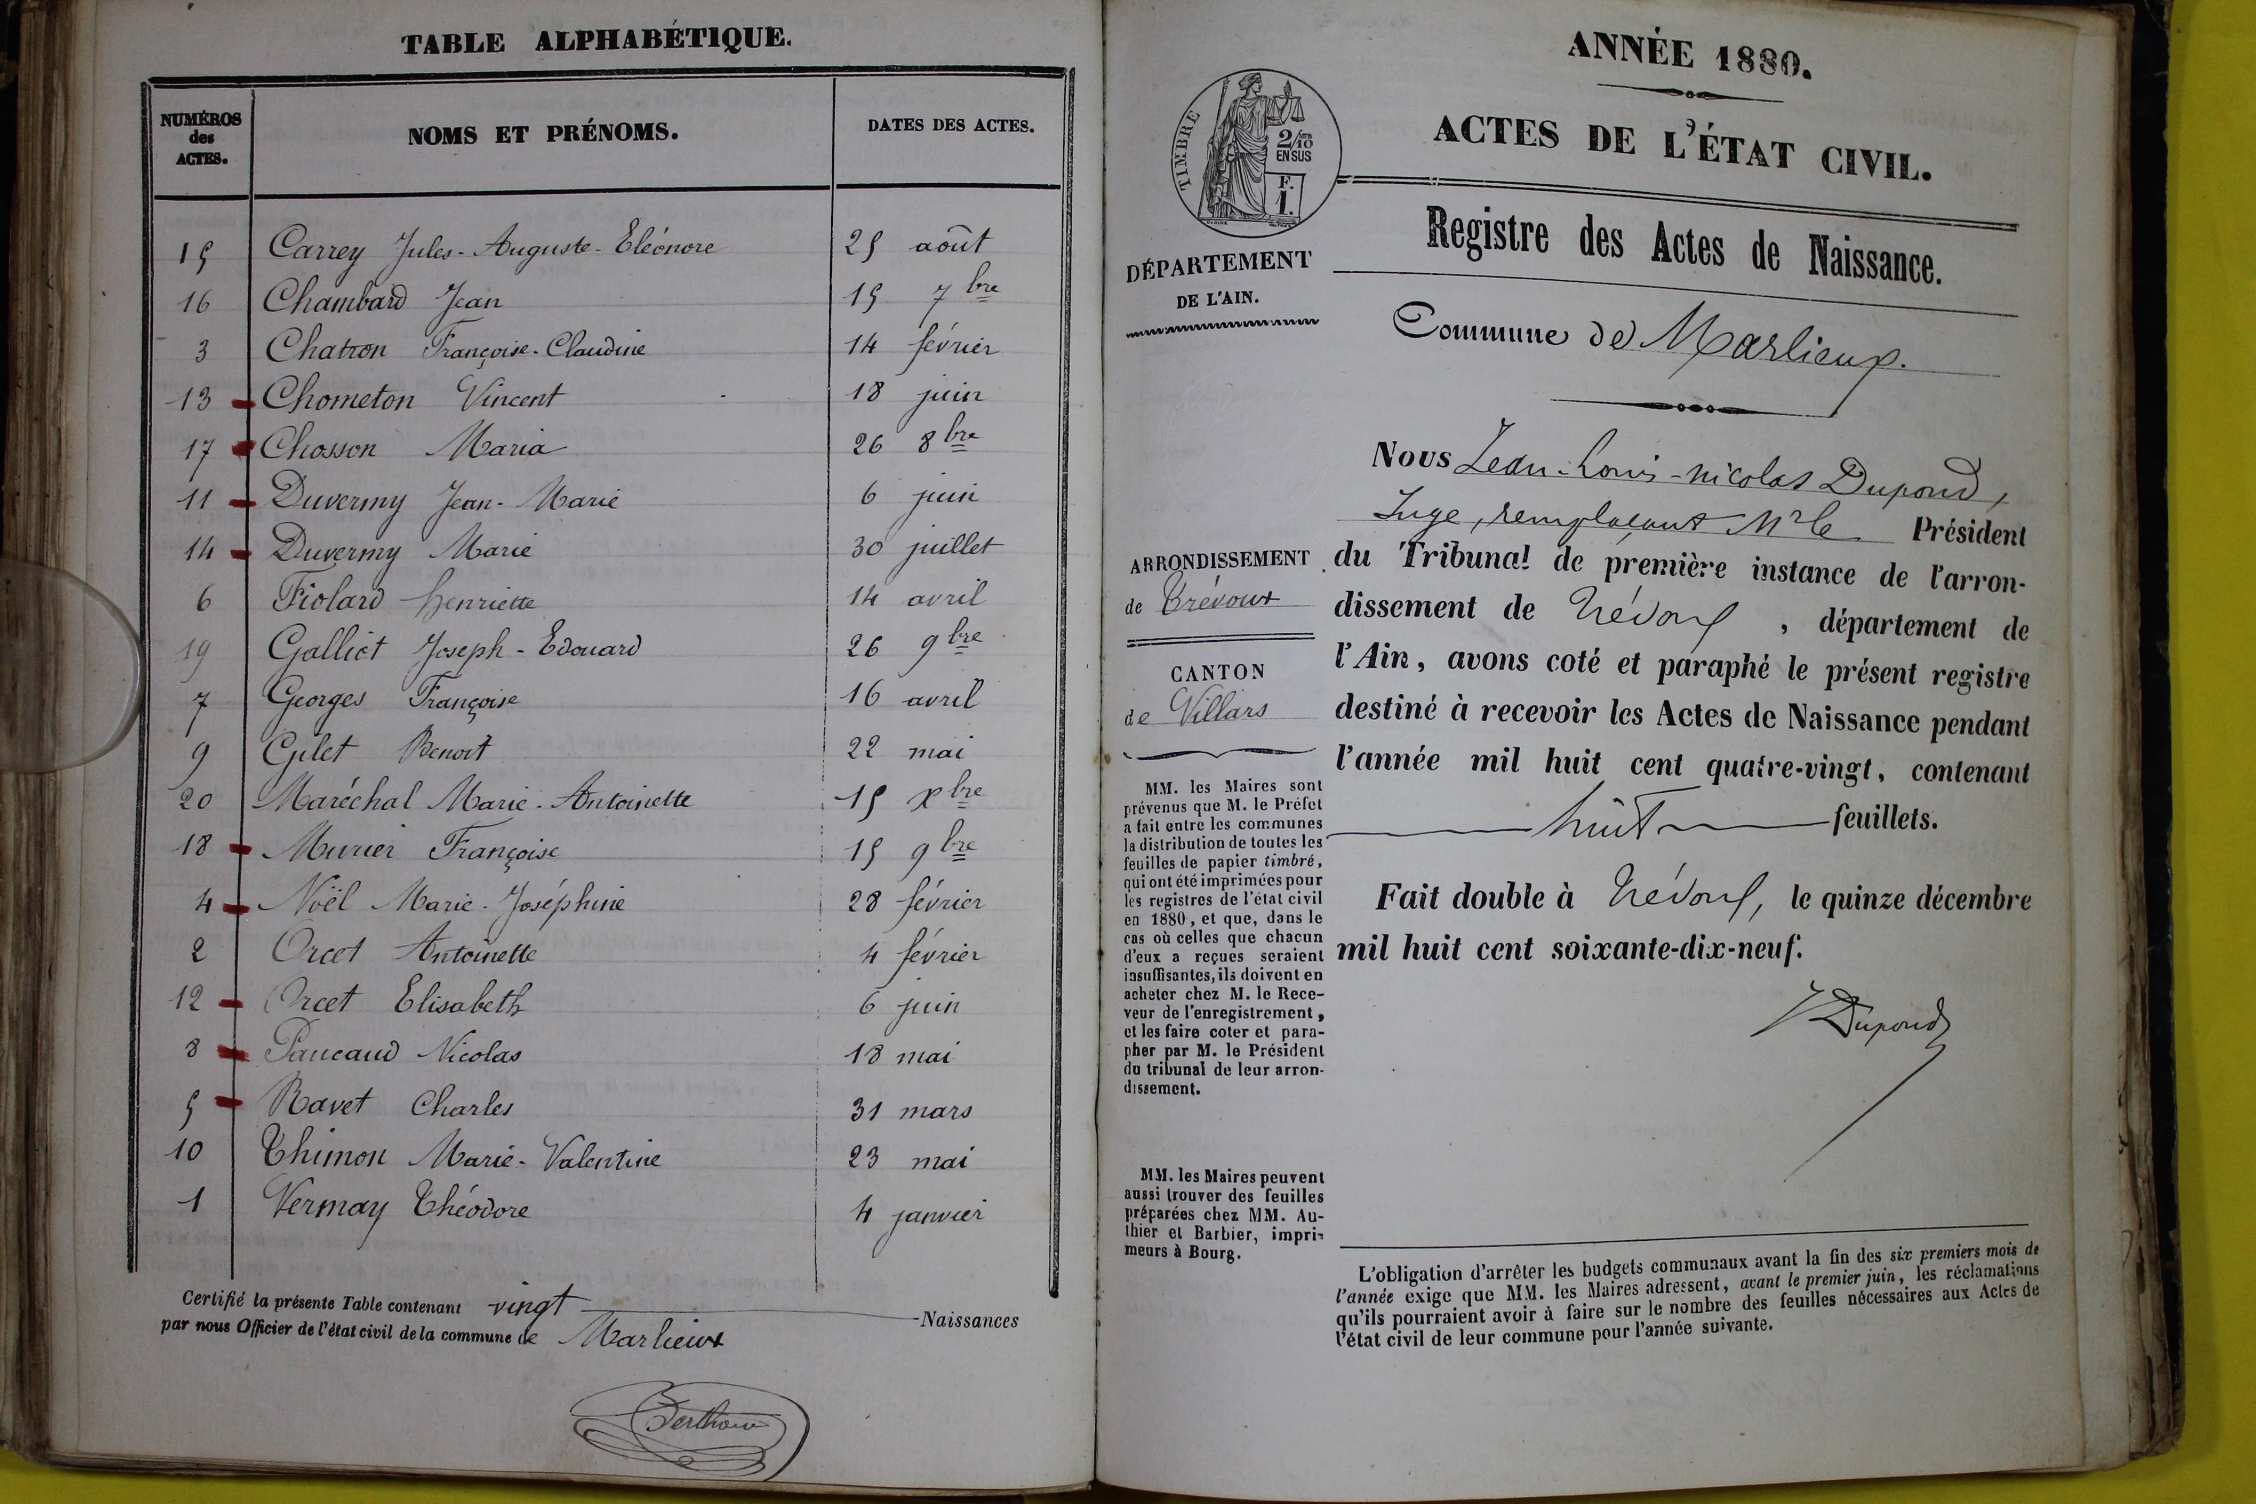 TABLE ALPHABÉTIQUE.
NUMÉROS
des
ACTES.
NOMS ET PRÉNOMS.
DATES DES ACTES.
15 Carrey Jules-Auguste-Eléonore 25 août
16 Chambard Jean 15 7bre
3 Chatron Françoise-Claudine 14 février
13 Chometon Vincent 18 juin
17 Chosson Maria 26 8bre
11 Duvermy Jean-Marie 6 juin
14 Duvermy Marie 30 juillet
6 Fiolard henriette 14 avril
19 Galliot Joseph-Edouard 26 9bre
7 Georges Françoise 16 avril
9 Gilet Benoit 22 mai
20 Maréchal Marie-Antoinette 15 xbre
18 Murier Françoise 15 9bre
4 Noël Marie-Joséphine 28 février
2 Orcet Antoinette 4 février
12 Orcet Elisabeth 6 juin
8 Paucaud Nicolas 18 mai
5 Ravet Charles 31 mars
10 Thimon Marie-Valentine 23 mai
1 Vermay Théodore 4 janvier
Certifié la présente Table contenant vingt Naissances
par nous Officier de l'état civil de la commune de Marlieux
ANNÉE 1880.
ACTES DE L'ÉTAT CIVIL.
TIMBRE
2/10
EN SUS
F.
1.
Registre des Actes de Naissance.
DÉPARTEMENT
DE L'AIN.
Commune de Marlieux.
Nous Jean-Louis-nicolas Dupond,
Juge, remplaçant Mr le Président
du Tribunal de première instance de l'arron-
dissement de Trévoux, département de
l'Ain, avons coté et paraphé le présent registre
destiné à recevoir les Actes de Naissance pendant
l'année mil huit cent quatre-vingt, contenant
huit feuillets.
Fait double à Trévoux, le quinze décembre
mil huit cent soixante-dix-neuf.
Dupond
ARRONDISSEMENT
de Trévoux
CANTON
de Villars
MM. les Maires sont
prévenus que M. le Préfet
a fait entre les communes
la distribution de toutes les
feuilles de papier timbré,
qui ont été imprimées pour
les registres de l'état civil
en 1880, et que, dans le
cas où celles que chacun
d'eux a reçues seraient
insuffisantes, ils doivent en
acheter chez M. le Rece-
veur de l'enregistrement,
et les faire coter et para-
pher par M. le Président
du tribunal de leur arron-
dissement.
MM. les Maires peuvent
aussi trouver des feuilles
préparées chez MM. Au-
thier et Barbier, impri-
meurs à Bourg.
L'obligation d'arrêter les budgets communaux avant la fin des six premiers mois de
l'année exige que MM. les Maires adressent, avant le premier juin, les réclamations
qu'ils pourraient avoir à faire sur le nombre des feuilles nécessaires aux Actes de
l'état civil de leur commune pour l'année suivante.